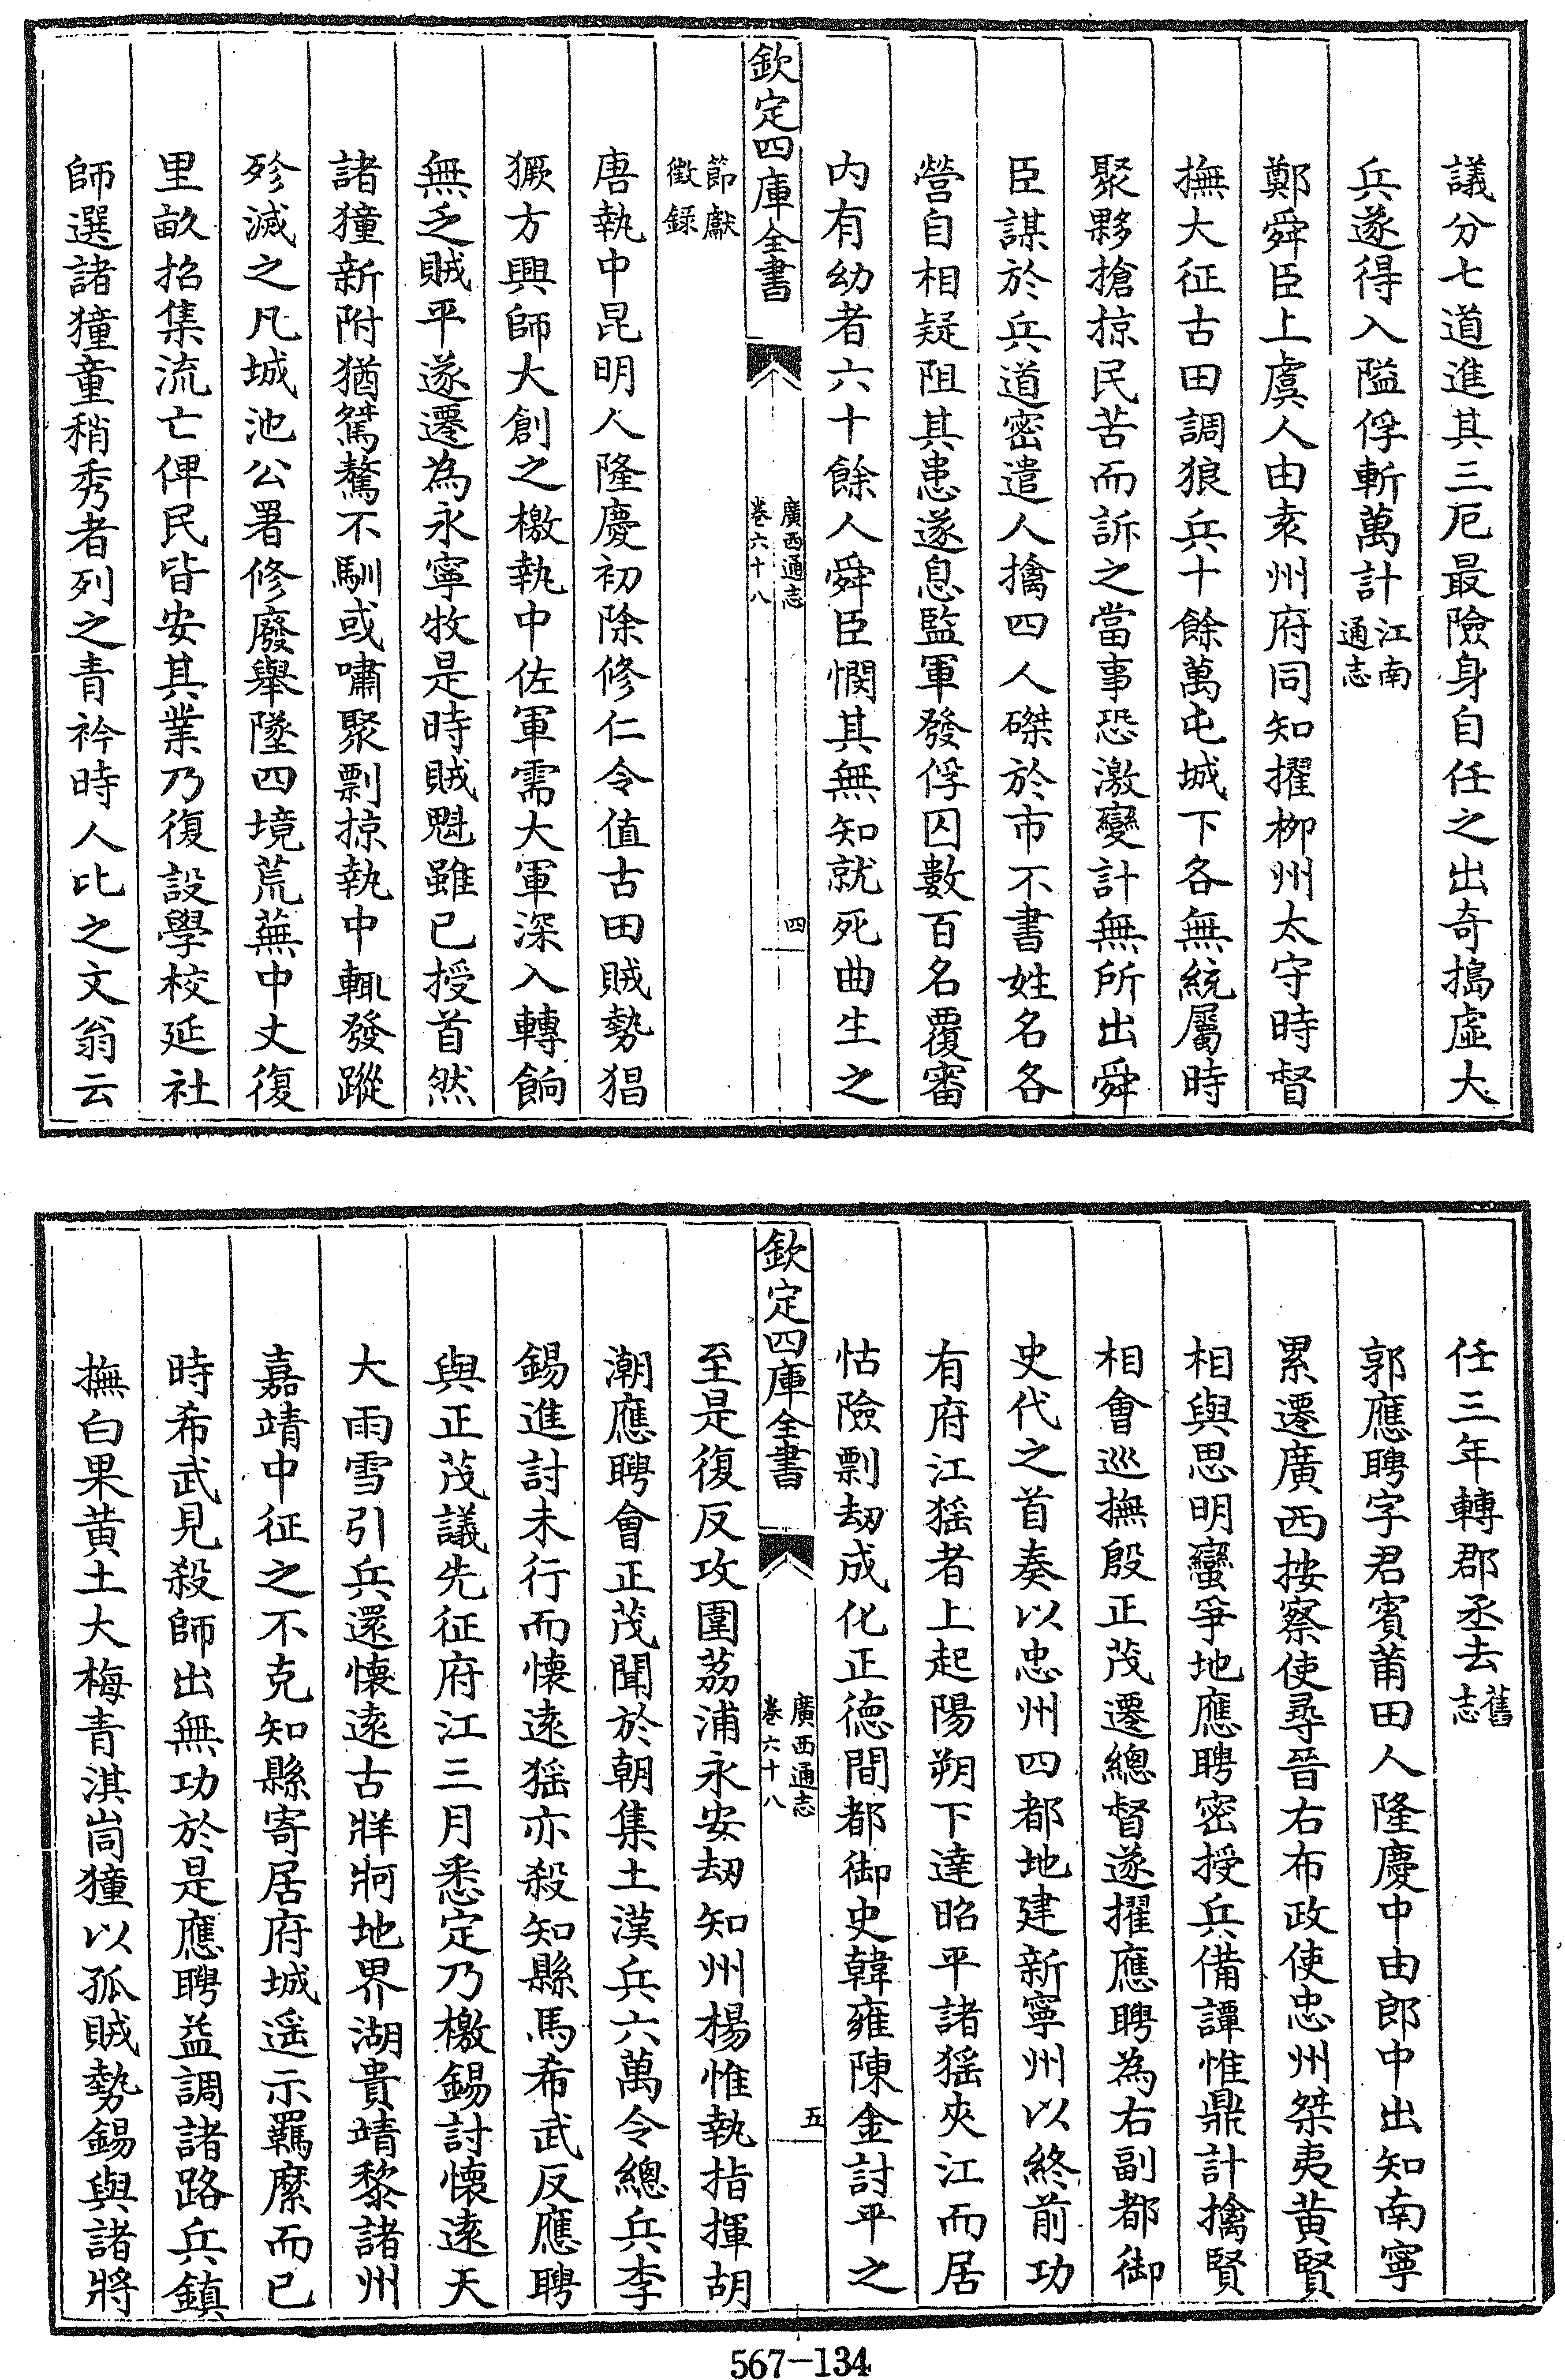 議分七道進其三厄最險身自任之出奇搗虛大
兵遂得入隘俘斬萬計江南通志
鄭舜臣上虞人由袁州府同知擢柳州太守時督
撫大征古田調狼兵十餘萬屯城下各無統屬時
聚夥搶掠民苦而訴之當事恐激變計無所出舜
臣謀於兵道密遣人擒四人磔於市不書姓名各
營自相疑阻其患遂息監軍發俘囚數百名覆審
内有幼者六十餘人舜臣憫其無知就死曲生之
欽定四庫全書 廣西通志 卷六十八 四
節獻徵錄
唐執中昆明人隆慶初除修仁令值古田賊勢猖
獗方興師大創之檄執中佐軍需大軍深入轉餉
無乏賊平遂遷為永寧牧是時賊魁雖已授首然
諸獞新附猶駑驁不馴或嘯聚剽掠執中輙發蹤
殄滅之凡城池公署修廢舉墜四境荒蕪中丈復
里畝招集流亡俾民皆安其業乃復設學校延社
師選諸獞童稍秀者列之青衿時人比之文翁云
任三年轉郡丞去舊志
郭應聘字君賓莆田人隆慶中由郎中出知南寧
累遷廣西按察使尋晉右布政使忠州桀夷黄賢
相與思明蠻爭地應聘密授兵備譚惟鼎計擒賢
相會巡撫殷正茂遷總督遂擢應聘為右副都御
史代之首奏以忠州四都地建新寧州以終前功
有府江猺者上起陽朔下達昭平諸猺夾江而居
怙險剽刼成化正德間都御史韓雍陳金討平之
欽定四庫全書 廣西通志 卷六十八 五
至是復反攻圍荔浦永安刼知州楊惟執指揮胡
潮應聘會正茂聞於朝集土漢兵六萬令總兵李
錫進討未行而懷遠猺亦殺知縣馬希武反應聘
與正茂議先征府江三月悉定乃檄錫討懷遠天
大雨雪引兵還懷遠古牂牁地界湖貴靖黎諸州
嘉靖中征之不克知縣寄居府城遥示羈縻而已
時希武見殺師出無功於是應聘益調諸路兵鎮
撫白果黄土大梅青淇峝獞以孤賊勢錫與諸將
567-134